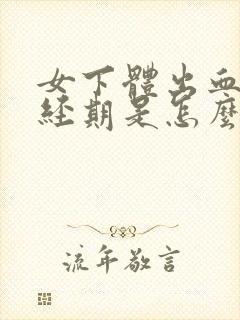 女下體出血
經期是怎麼
流年敬言